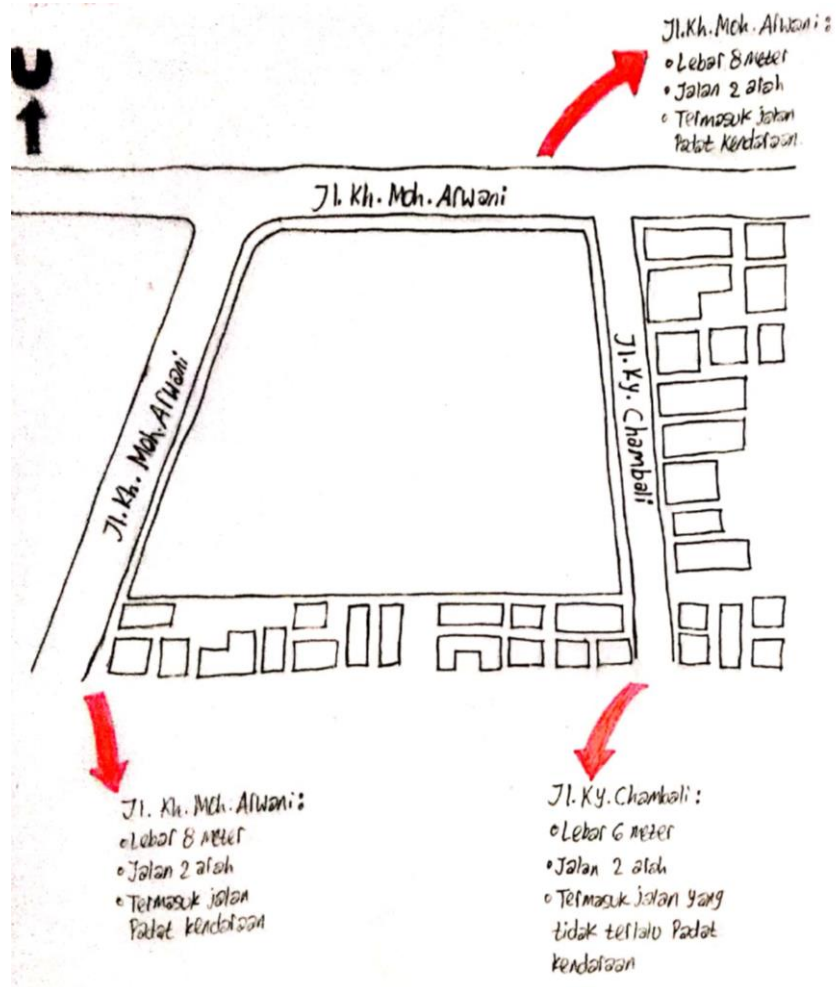 Jl.Kh.Moh.Arwani:
• Lebar 8 meter
• Jalan 2 arah
• Termasuk jalan
Padat Kendaraan
U
Jl. Kh. Moh. Arwani
Jl. Kh. Moh. Arwani
Jl. Ky. Chambali
Jl. Kh. Moh. Arwani:
• Lebar 8 meter
• Jalan 2 arah
• Termasuk jalan
Padat kendaraan
Jl. Ky. Chambali:
• Lebar 6 meter
• Jalan 2 arah
• Termasuk jalan yang
tidak terlalu Padat
kendaraan